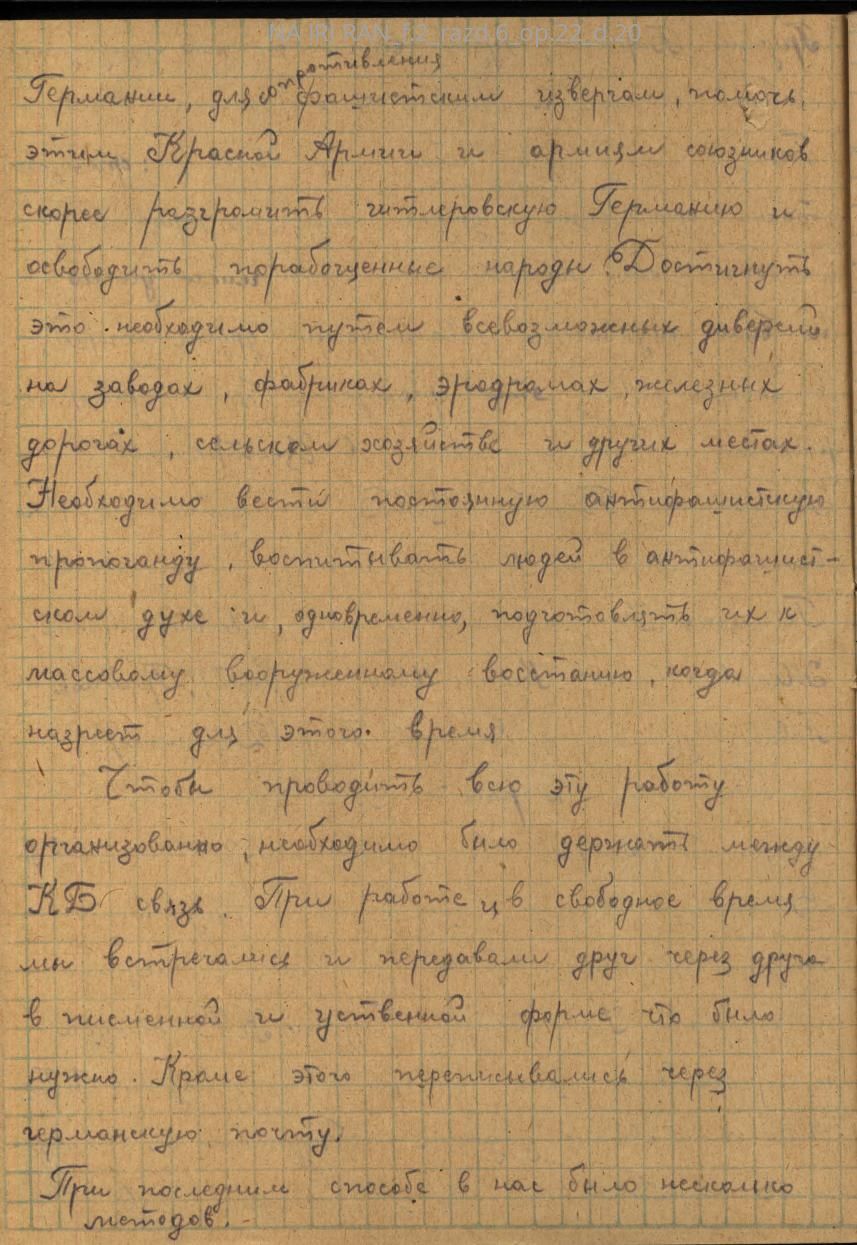 NA IRI RAN_f.2_razd.6_op.22_d.20
сопротивления
Германии, для фашистским извергам, помочь
этим Красной Армии и армиям союзников
скорее разгромить гитлеровскую Германию и
освободить порабощенные народы. Достигнуть
это необходимо путем всевозможных диверсий
на заводах, фабриках, эродромах, железных
дорогах, сельском хозяйстве и других местах.
Необходимо вести постоянную антифашисткую
пропоганду, воспитывать людей в антифашист-
ском духе и, одновременно, подготовлять их к
массовому вооруженному восстанию, когда
назреет для этого время
Чтобы проводить всю эту работу
организованно, необходимо было держать между
КБ связь. При работе и в свободное время
мы встречались и передавали друг через друга
в писменной и уственной форме что было
нужно. Кроме этого переписывались через
германскую почту.
При последним способе в нас было несколко
методов.